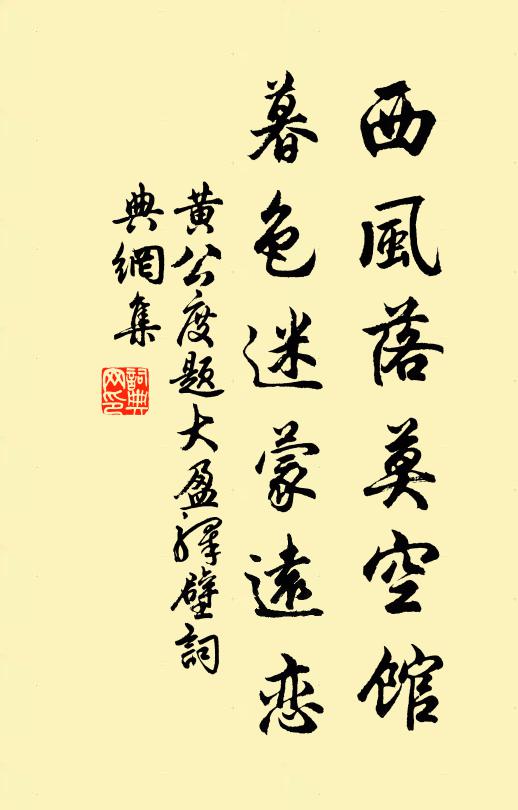 西風落莫空館
暮色迷蒙遠恋
黄公度題大盈驛壁詞
典網集
詞典
网印